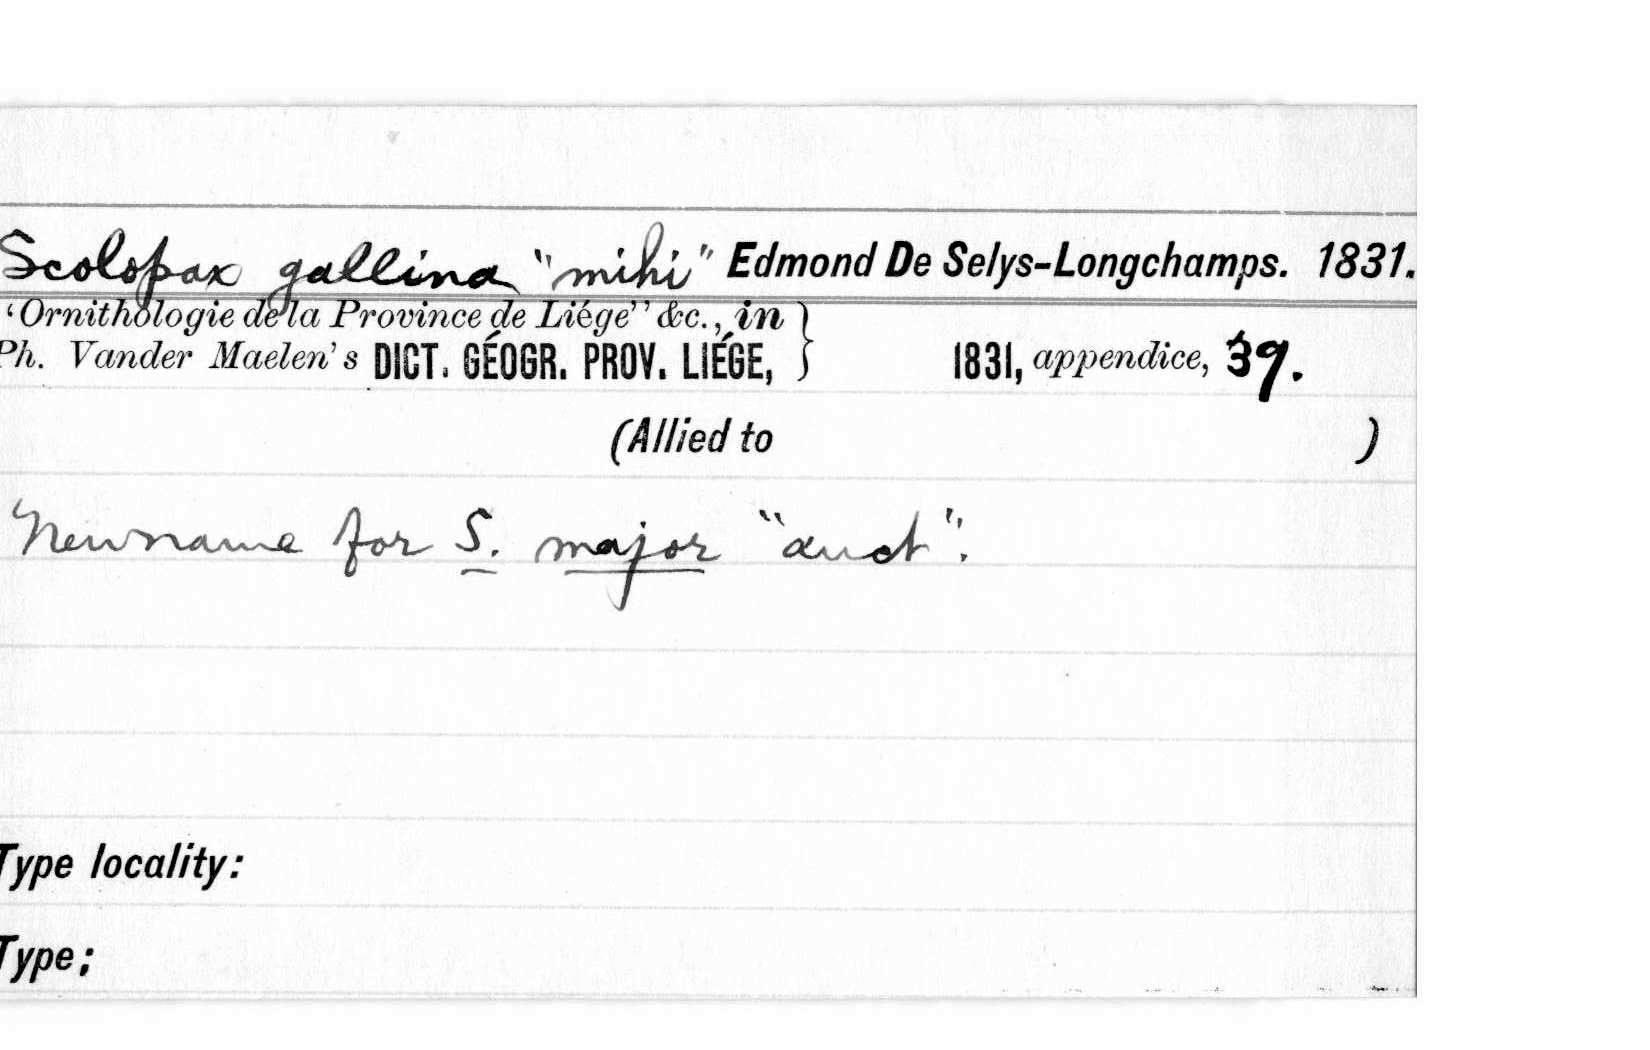 Scolopax gallina "mihi" Edmond De Selys-Longchamps. 1831.
‘Ornithologie de la Province de Liége" &c., in }
Ph. Vander Maelen's DICT. GÉOGR. PROV. LIÉGE, } 1831, appendice, 39.
(Allied to )
New name for S. major "auct".
Type locality:
Type;